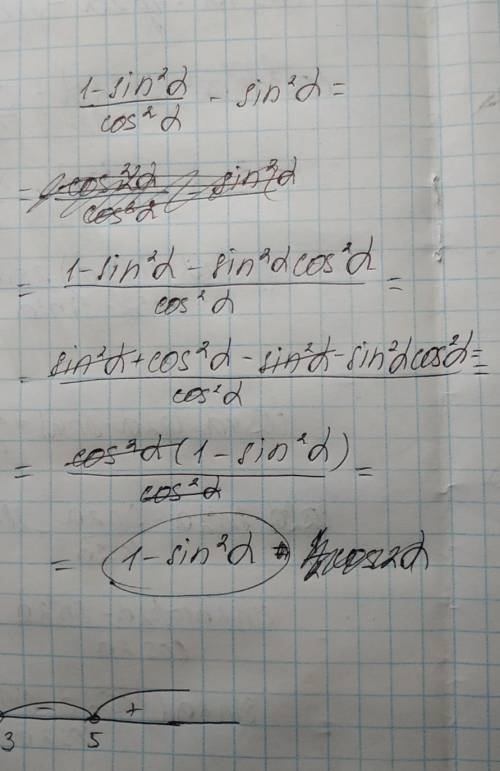 (1-sin²α)/cos²α - sin²α =
= cos²α/cos²α - sin²α
= (1-sin²α - sin²α cos²α)/cos²α =
= (sin²α + cos²α - sin²α - sin²α cos²α)/cos²α =
= cos²α(1-sin²α)/cos²α =
= 1-sin²α cos2α
- +
3 5